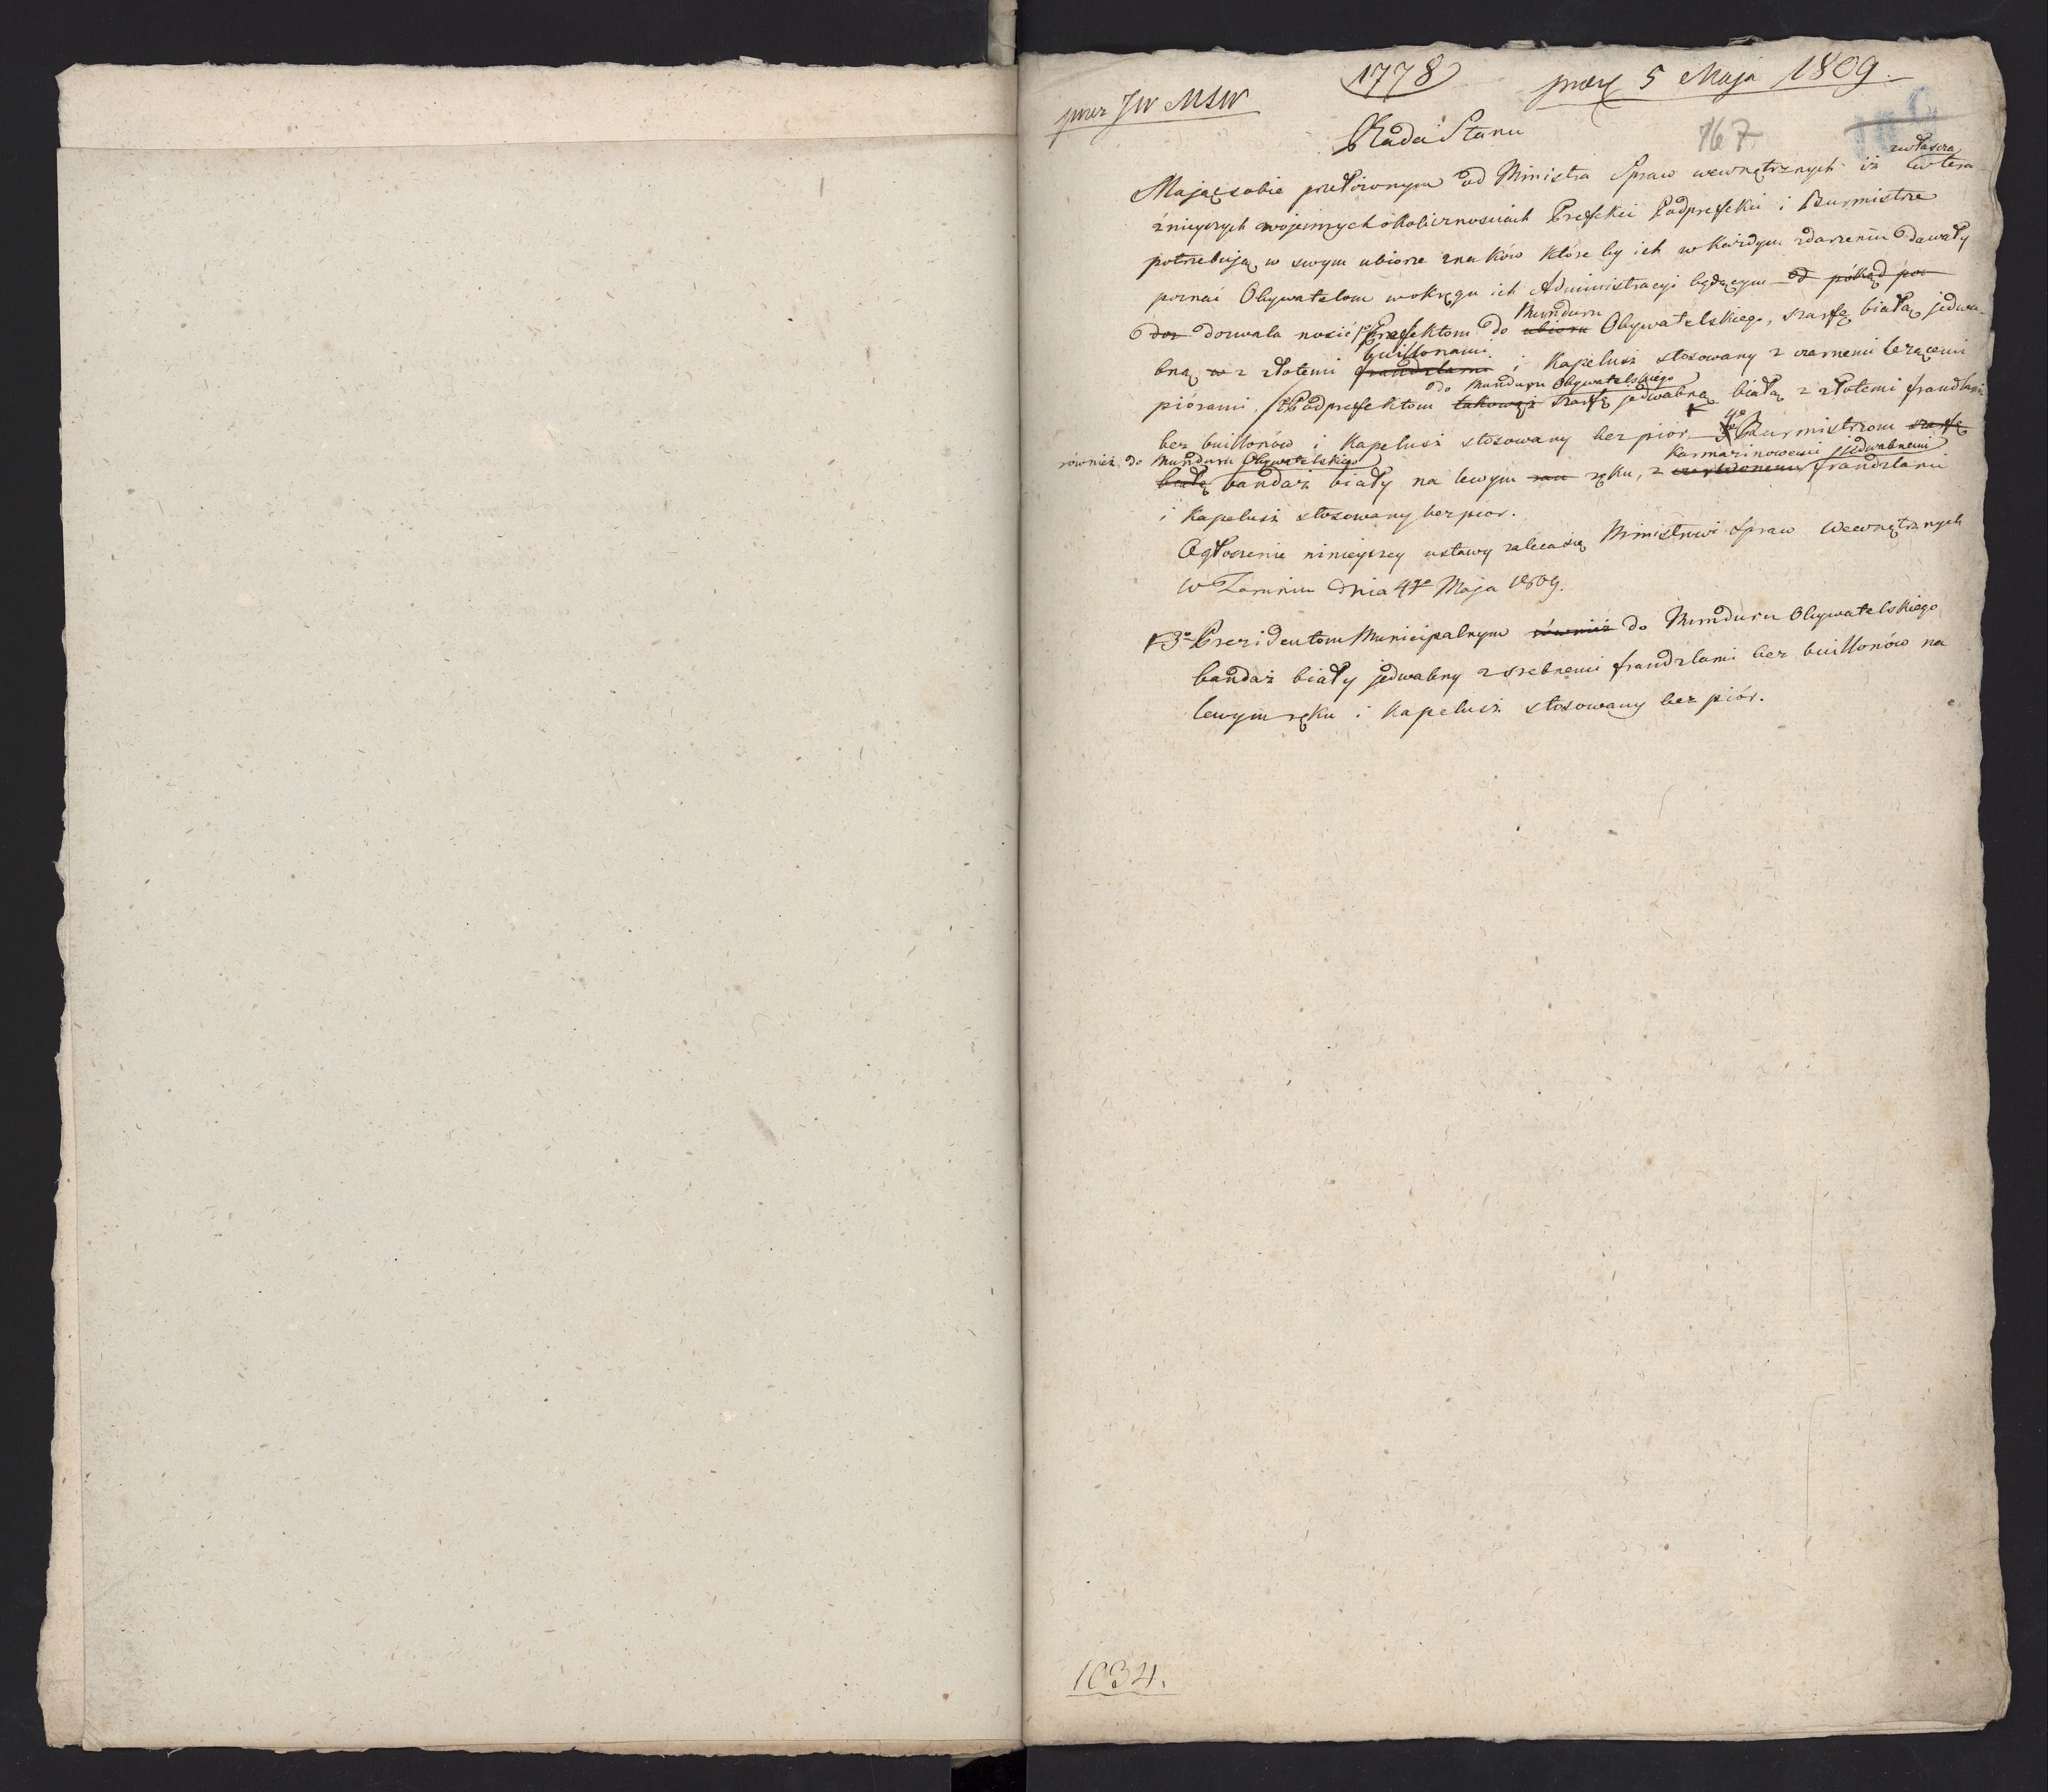 1778
5 Maja 1809.
przez JW MSW
167
Rada Stanu
zwłaszcza
Mając sobie przełożonym od Ministra Spraw wewnętrznych iż w tera
źnieyszych wojennych okolicznosciach Prefekci Podprefekci i Burmistrze
potrzebują w swym ubiorze znaków które by ich w każdym zdarzeniu dawały
poznać Obywatelom w okręgu ich Administracyi będącym od pókąd poz
Munduru
doz dozwala nosić 1o Prefektom do ubioru Obywatelskiego, szarfę białą jedwa-
buillonami
bną w z złotemi frandzlami i Kapelusz stosowany z czarnemi leżącemi
do Munduru Obywatelskiego
piórami. 2o Podprefektom takowąż szarfę jedwabną białą z złotemi frandzlami
bez buillonów i Kapelusz stosowany bez piór, 4o Burmistrzom szarfę
również do Munduru Obywatelskiego
Karmazinowemi jedwabnemi
białą bandaż biały na lewym ręku, z czerwonemi frandzlami
i Kapelusz stosowany bez piór.
Ogłoszenie ninieyszey ustawy zaleca się Ministrowi Spraw Wewnętrznych
w Toruniu dnia 4go Maja 1809.
3o Prezidentom Municipalnym również do Munduru Obywatelskiego
bandaż biały jedwabny z srebnemi frandzlami bez buillonów na
lewym ręku i Kapelusz stosowany bez piór.
1034.